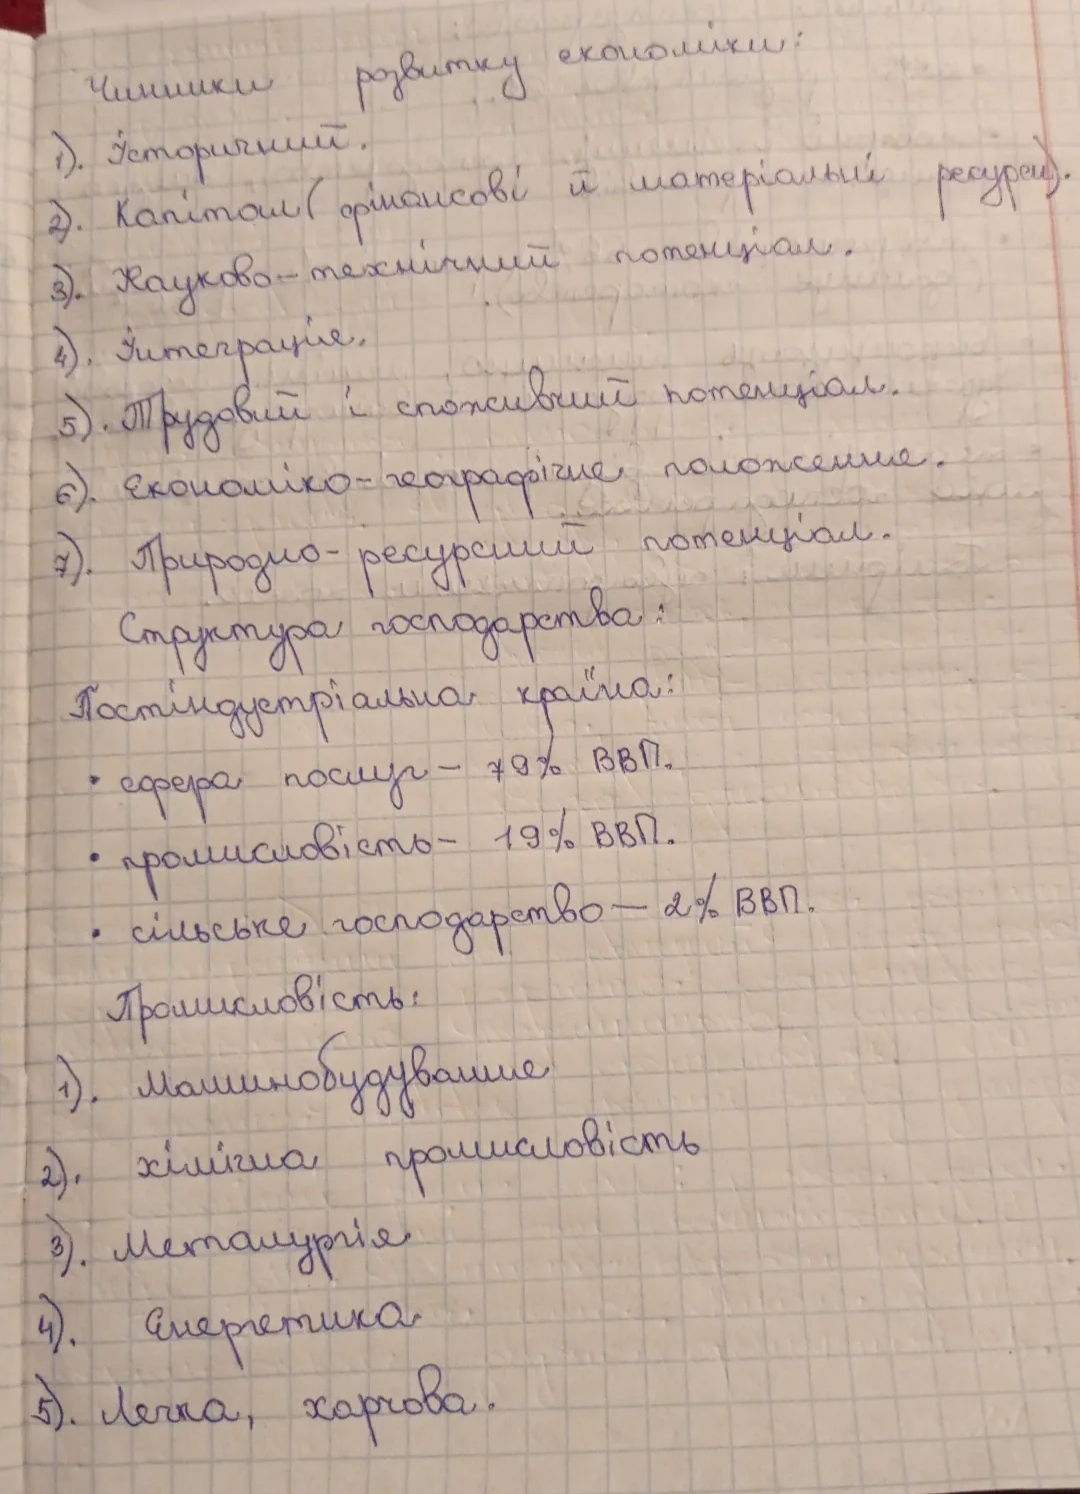 Чинники розвитку економіки:
1). Історичний.
2). Капітал (фінансові й матеріальні ресурси).
3). Науково-технічний потенціал.
4). Інтеграція.
5). Трудовий і споживчий потенціал.
6). Економіко-географічне положення.
7). Природно-ресурсний потенціал.
Структура господарства:
Постіндустріальна країна:
• сфера послуг - 79% ВВП.
• промисловість - 19% ВВП.
• сільське господарство - 2% ВВП.
Промисловість:
1). Машинобудування
2). хімічна промисловість
3). Металургія
4). Енергетика
5). Легка, харчова.